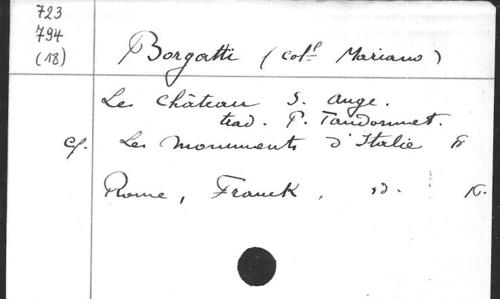 723
794
(18)
Borgatti (colˡ Mariano)
Le Château S. Ange.
trad. P. Tandonnet.
Cf. Les Monuments d'Italie 8
Rome, Franck, sd. K.